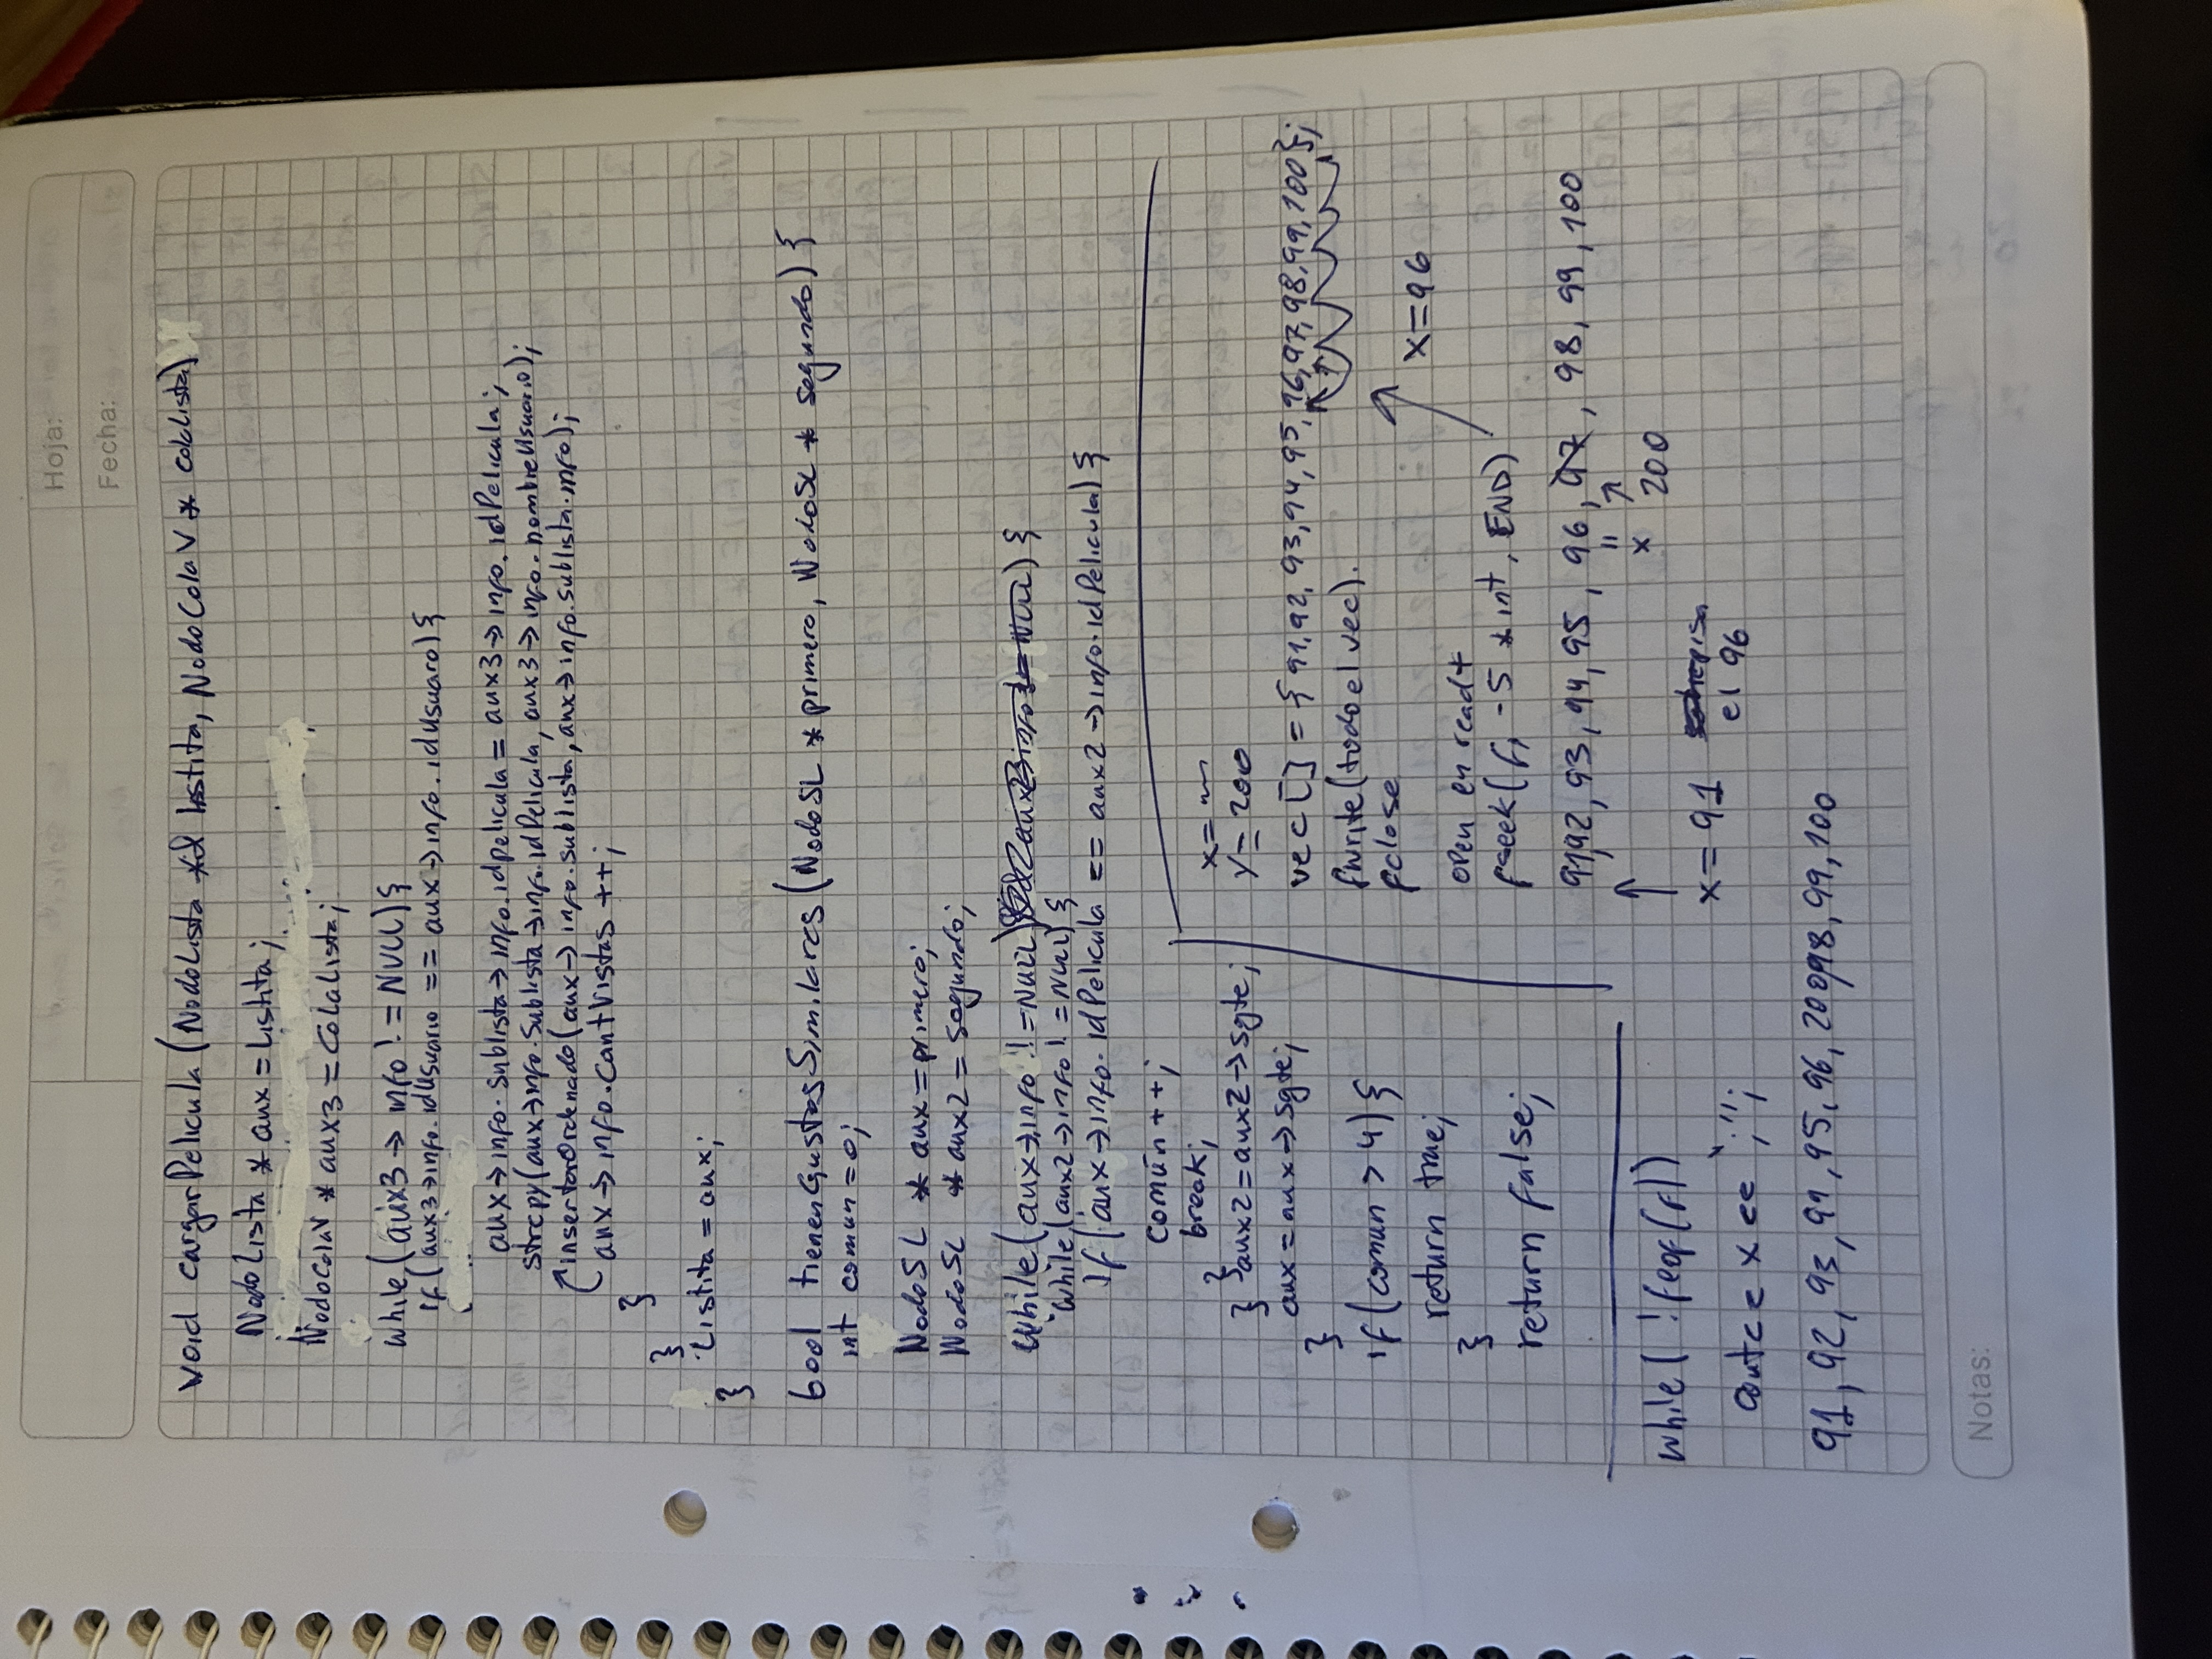 Hoja:
Fecha:
void cargarPelicula (NodoLista *& listita, NodoColaV * colaLista)
NodoLista * aux = Listita;
NodoColaV * aux3 = ColaLista;
while (aux3 -> info != NULL) {
if (aux3->info.idUsuario == aux->info.idUsuaro) {
aux->info.sublista->info.idpelicula = aux3->info.idPelicula;
strcpy(aux->info.Sublista->info.idPelicula, aux3->info.nombreUsuario);
insertarOrdenado(aux-> info.sublista, aux->info.sublista.info);
aux->info.cantVistas ++;
}
}
Listita = aux;
}
bool tienenGustosSimilares (NodoSL * primero, NodoSL * segundo) {
int comun = 0;
NodoSL * aux = primero;
NodoSL * aux2 = segundo;
while (aux->info != NULL) && aux2->info != NULL) {
while (aux2->info != NULL) {
if (aux->info.idPelicula == aux2->info.idPelicula) {
común ++;
break;
}
} aux2 = aux2->sgte;
aux = aux->sgte;
}
if (comun > 4) {
return true;
}
return false;
x =
y = 200
vec [] = { 91, 92, 93, 94, 95, 96, 97, 98, 99, 100 };
fwrite (todo el vec).
fclose
x = 96
open en read+
fseek (f, -5 * int, END)
91, 92, 93, 94, 95, 96, 97, 98, 99, 100
"
x 200
x = 91 sobrepisa
el 96
while ( !feof(f))
cout << x << ";";
91, 92, 93, 94, 95, 96, 200, 98, 99, 100
Notas: